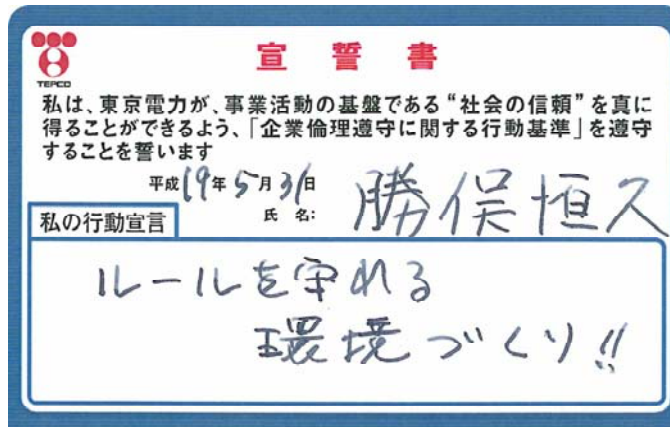 TEPCO
宣誓書
私は、東京電力が、事業活動の基盤である“社会の信頼”を真に
得ることができるよう、「企業倫理遵守に関する行動基準」を遵守
することを誓います
平成19年5月31日
氏 名: 勝俣恒久
私の行動宣言
ルールを守れる
環境づくり!!